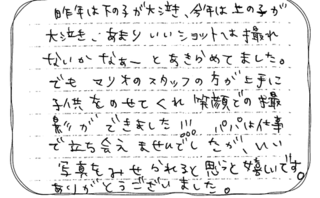 昨年は下の子が大泣き、今年は上の子が
大泣き、あまりいいショットは撮れ
ないかなあーとあきらめてました。
でもマリオのスタッフの方が上手に
子供をのせてくれ笑顔での撮
影ができました!!! パパは仕事
で立ち会えませんでしたが、いい
写真をみせられると思うと嬉いです。
ありがとうございました。